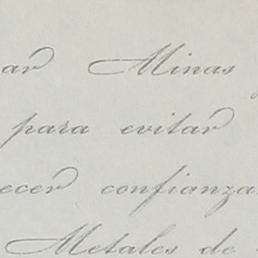 ar Minas
para evitar
ecer confianza
Metales de